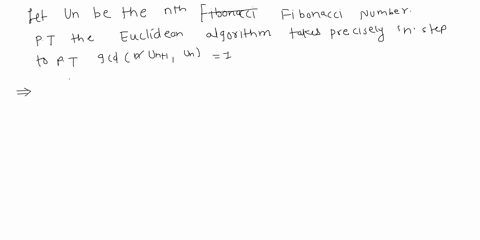 Let Un be the nth Fibonacci Fibonacci Number.
PT the Euclidean algorithm takes precisely in step
to PT gcd ( Un+1, Un) = 1
⇒